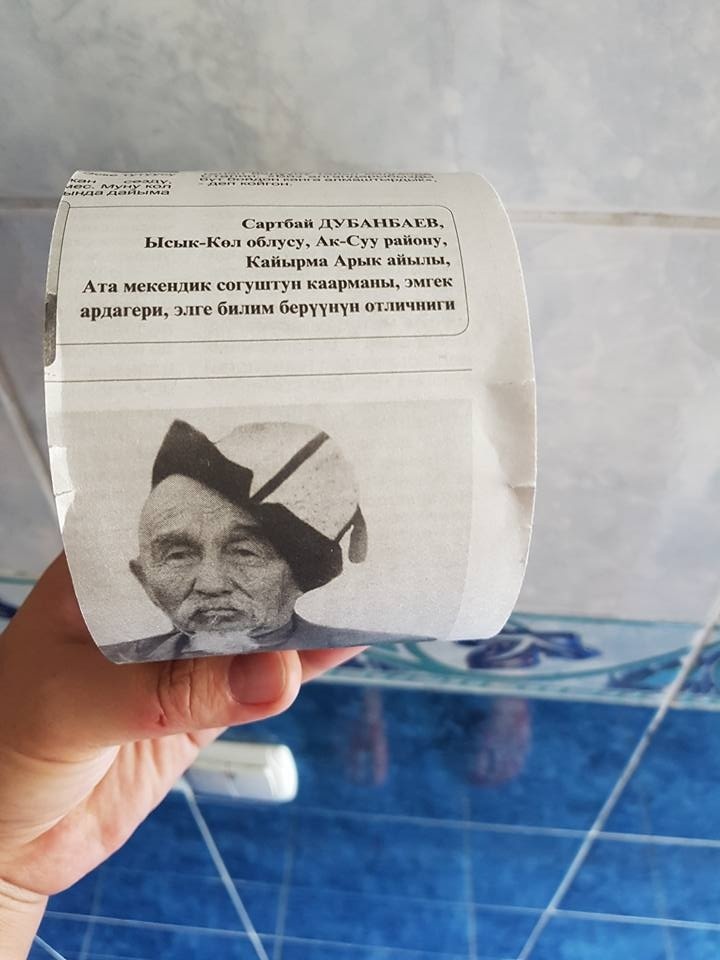 сөздү,
мес. Муну кол
ында дайыма
- деп койгон.
Сартбай ДУБАНБАЕВ,
Ысык-Көл облусу, Ак-Суу району,
Кайырма Арык айылы,
Ата мекендик согуштун каарманы, эмгек
ардагери, элге билим берүүнүн отличниги